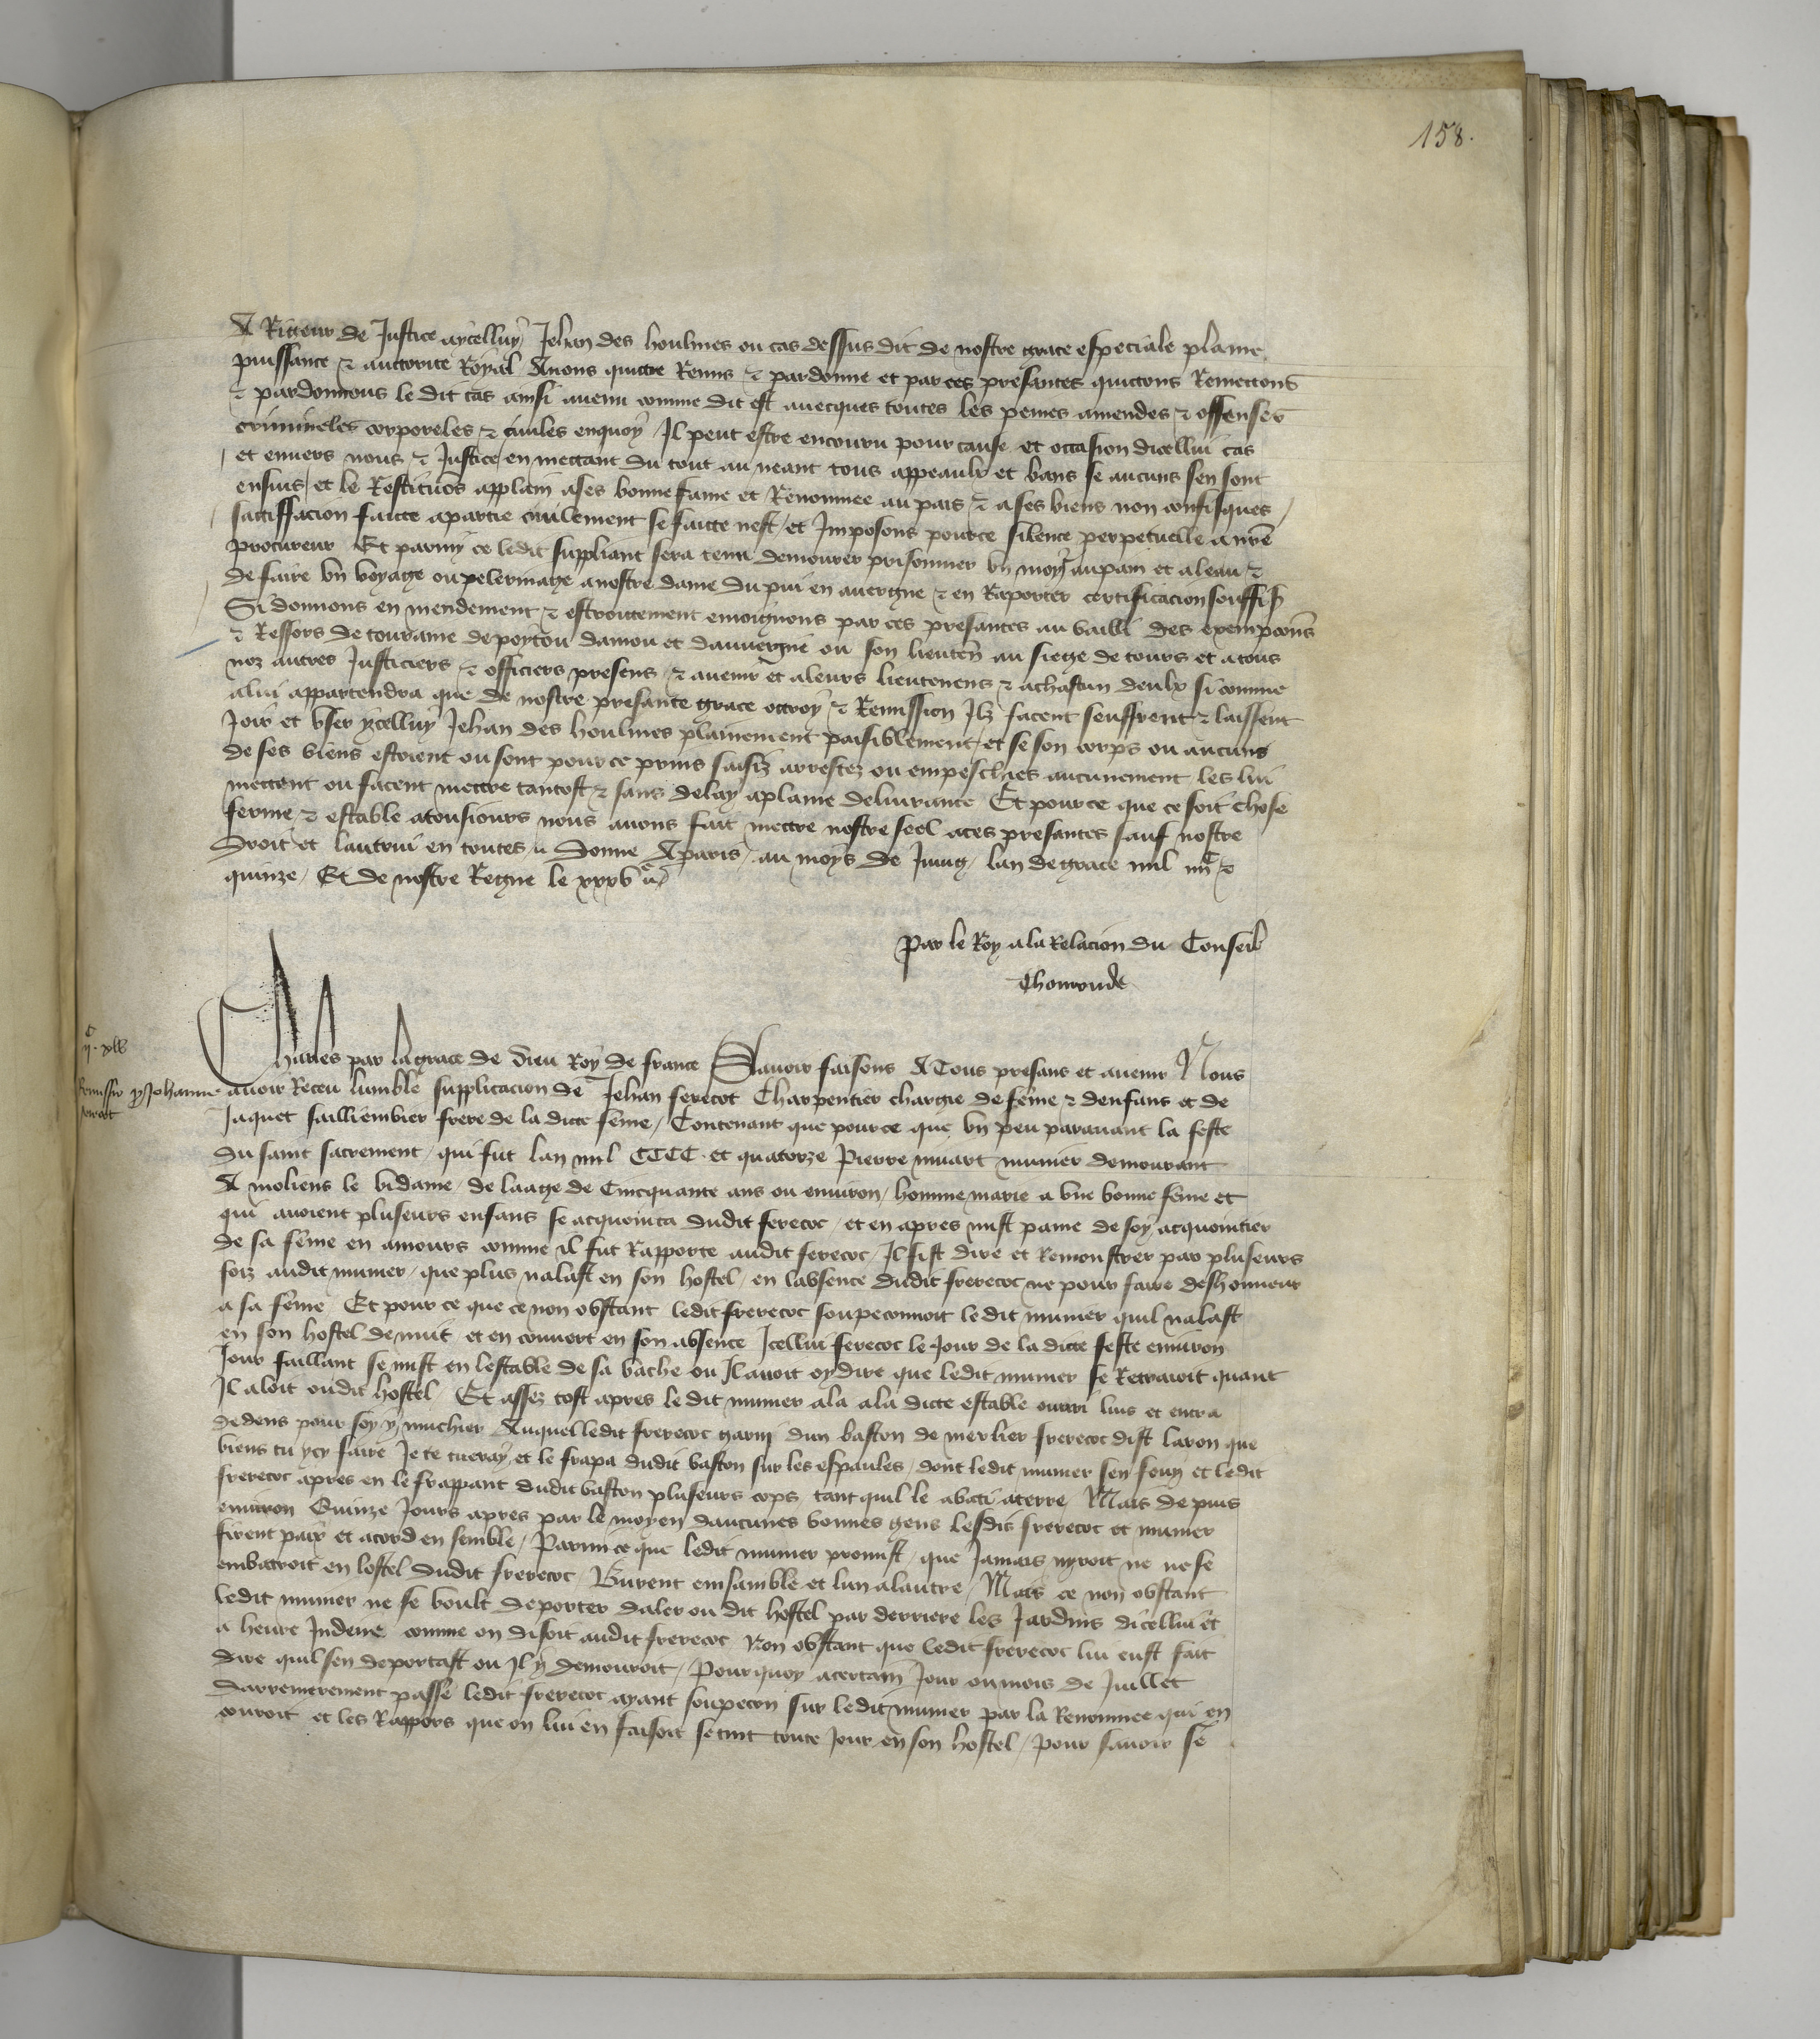 158.
A Rigueur de Justice aycelluy Jehan des houlmes ou cas dessus dit de nostre grace especiale plaine
puissance & auctorite Royal Avons quitte Remis & pardonne et par ces presantes quictons Remettons
& pardonnons le dit cas ainsi avenu comme dit est avecques toutes les peines amendes & offenses
crimineles corporeles & civiles enquoy Il peut estre encouru pour cause et occasion dicellui cas
et envers nous & Justice en mettant du tout au neant tous appeaulx et bans se aucuns sen sont
ensuis et le Restituons applain ases bonne fame et Renommee au pais & ases biens non confisques
satiffacion faicte apartie civilement se faicte nest et Imposons pource silence perpetuelle a nrē
procureur Et parmy ce ledit suppliant sera tenu demourer prisonnier un moys aupain et aleau &
de faire un voyage ou pelerinage a nostre dame du pui en auvergne & en Raporter certificacion souffis
Si donnons en mendement & estroictement enioignons par ces presantes au bailli des exempcions
& Ressors de touraine de poytou daniou et dauvergne ou son lieutenē au siege de tours et a tous
noz autres Justiciers & officiers presens & avenir et aleurs lieutenens & achascun deulx si comme
alui appartendra que de nostre presante grace ottroy & Remission Ilz facent seuffrent & laissent
Joir et user ycelluy Jehan des houlmes plainement paisiblement et se son corps ou aucuns
de ses biens estoient ou sont pource prins saisiz arrestez ou empeschies aucunement les lui
mettent ou facent mettre tantost & sans delay aplaine delivrance Et pource que ce soit chose
ferme & estable atousiours nous avons fait mettre nostre seel aces presantes sauf nostre
droit et lautrui en toutes Donne A paris au moys de Juing lan de grace mil iiiic &
quinze Et de nostre Regne le xxxve
Par le Roy ala Relacion du Conseil
Charles par la grace de dieu Roy de france Savoir faisons A Tous presans et avenir Nous
iic xlv
Remissio p Johanne ferecot
avoir Receu lumble supplicacion de Jehan ferecot Charpentier chargie de feme & denfans et de
Jaquet sailliembier frere de la dicte feme Contenant que pource que un peu paravant la feste
du saint sacrement qui fut lan mil CCCC et quatorze Pierre muart munier demourant
A moliens le vidame de laage de Cincquante ans ou environ homme marie a une bonne feme et
qui avoient pluseurs enfans se acquointa dudit ferecoc et en apres mist paine de soy acquointier
de sa feme en amours comme il fut Rapporte audit ferecoc Il fist dire et Remonstrer par pluseurs
foiz audit munier que plus nalast en son hostel en labsence dudit frerecoc ne pour faire deshonneur
a sa feme Et pour ce que ce non obstant ledit frerecoc soupeconnoit le dit munier quil nalast
en son hostel de nuit et en couvert en son absence Icellui ferecoc le Jour de la dicte feste environ
Jour faillant se mist en lestable de sa vache ou Il avoit oy dire que ledit munier se Retraioit quant
Il aloit oudit hostel Et assez tost apres le dit munier ala ala dicte estable ouvri luis et entra
dedens pour soy y muchier Auquel ledit frerecoc garni dun baston de merlier frerecoc dist laron que
viens tu ycy faire Je te tueray et le frapa dudit baston sur les espaules dont ledit munier sen fouy et ledit
frerecoc apres en le frappant dudit baston pluseurs cops tant quil le abati aterre Mais depuis
environ Quinze Jours apres par le moyen daucunes bonnes gens lesdis frerecoc et munier
firent paix et acord en semble Parmi ce que ledit munier promist que Jamais nyroit ne ne se
embatroit en lostel dudit frerecoc Burent ensamble et lun alautre Mais ce non obstant
ledit munier ne se voult deporter daler ou dit hostel par derriere les Jardins dicellui et
a heure Indeue comme on disoit audit frerecoc Non obstant que ledit frerecoc lui eust fait
dire quil sen deportast ou Il y demourroit Pourquoy acertain Jour ou mois de Juillet
darrenierement passe ledit frerecoc ayant soupecon sur ledit munier par la Renommee qui en
couroit et les Rappors que on lui en faisoit se tint toute Jour en son hostel pour savoir se